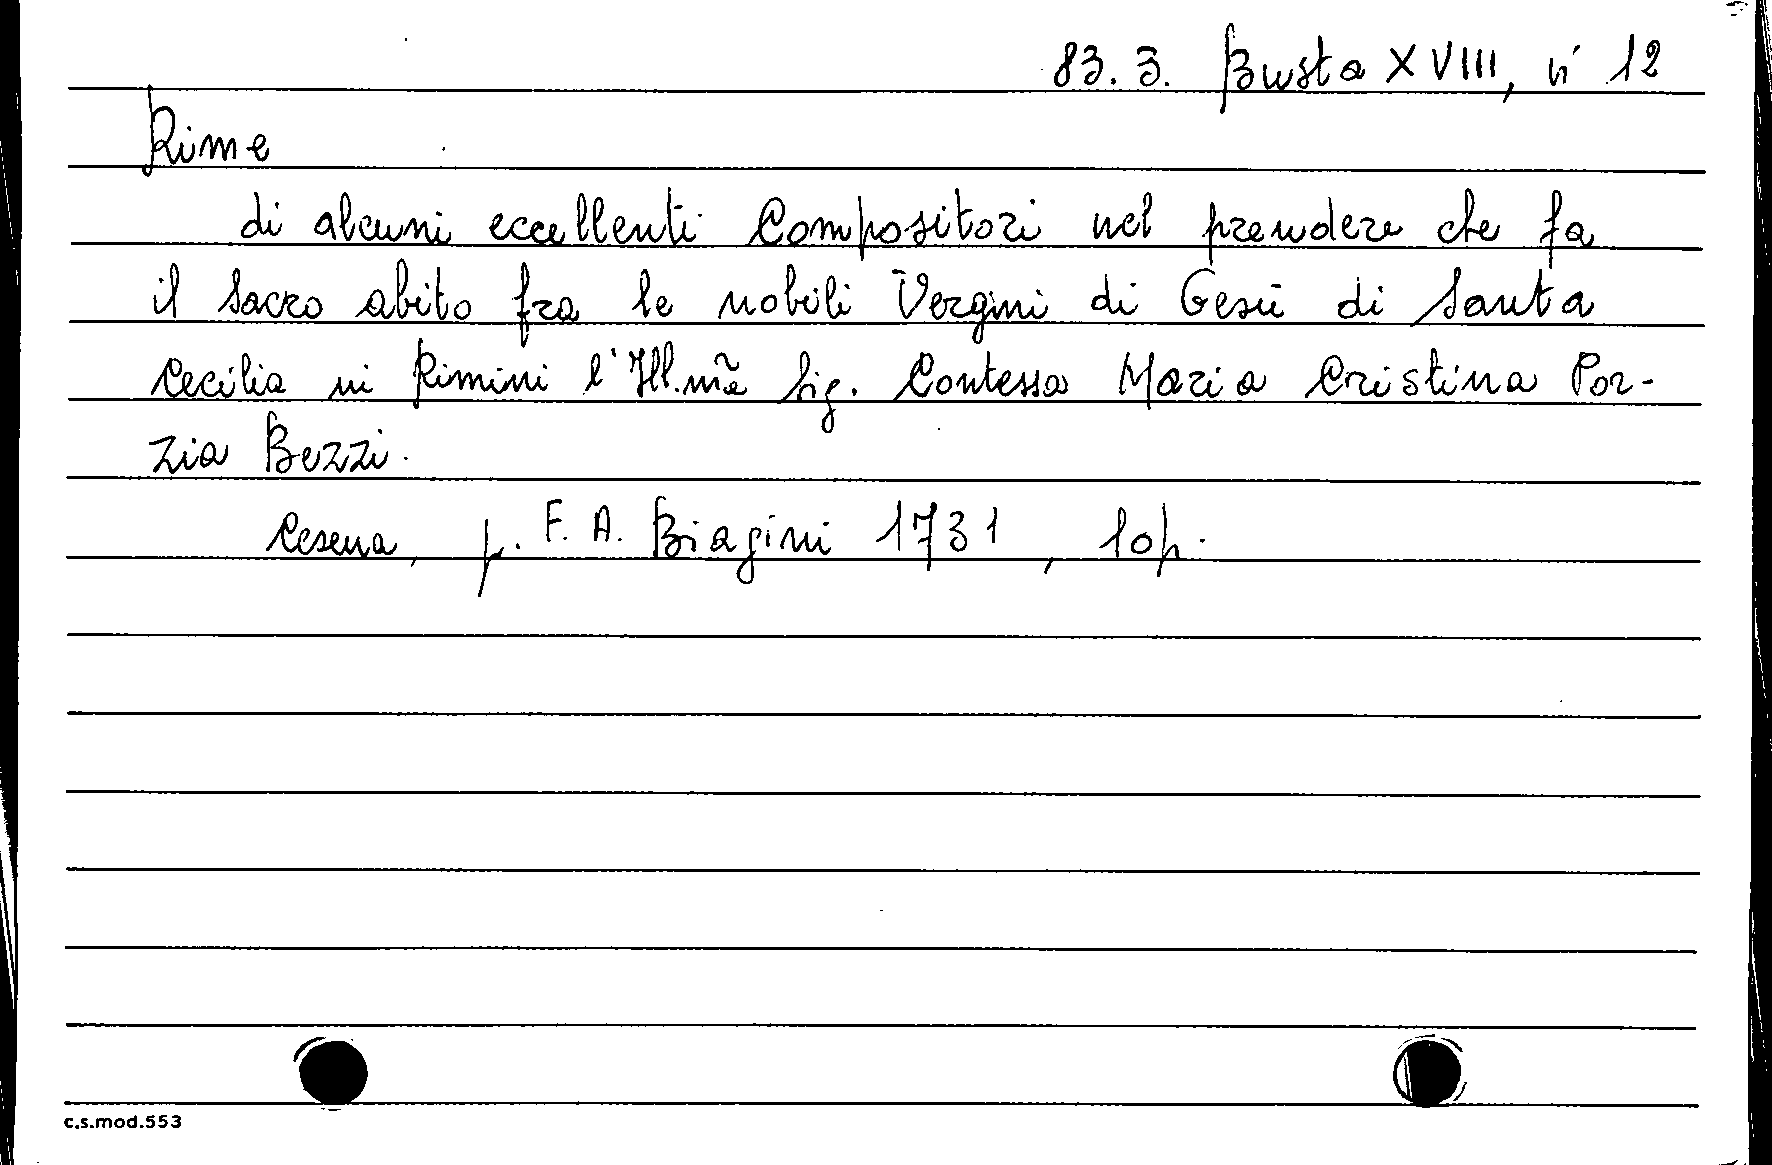 83. 3. Busta XVIII, n° 12
Rime
di alcuni eccellenti Compositori nel prendere che fa
il sacro abito fra le nobili Vergini di Gesù di Santa
Cecilia in Rimini l'Ill.mã Sig. Contessa Maria Cristina Por-
zia Bezzi.
Cesena, p. F. A. Biagini 1731, 10 p.
c.s.mod.553